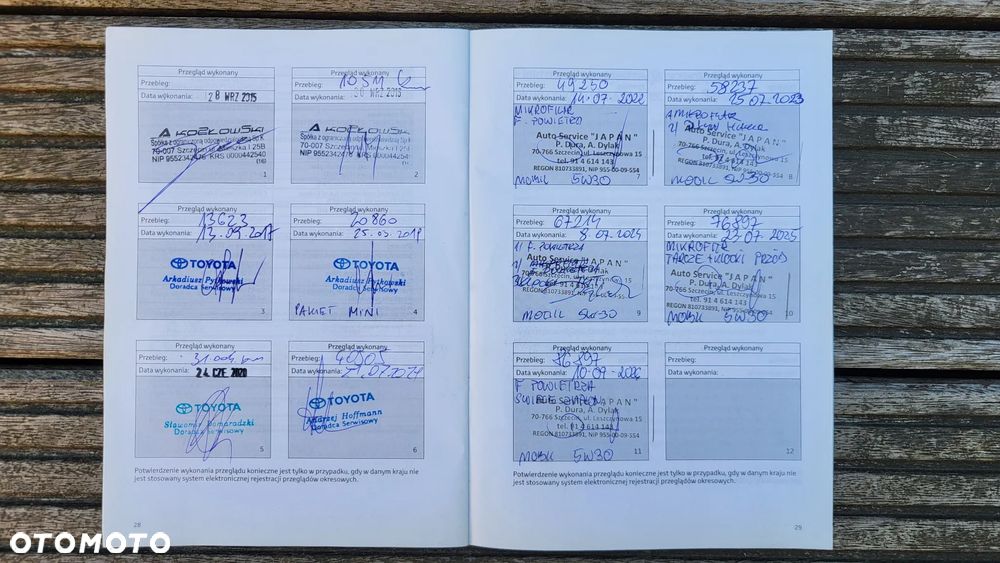 Przegląd wykonany
Przebieg:
Data wykonania: 28 WRZ 2015
A KOZŁOWSKI
Spółka z ograniczoną odpowiedzialnością Sp.K.
70-007 Szczecin, ul. Mieszka I 25B
NIP 9552342476 KRS 0000442540
1
Przegląd wykonany
Przebieg:
Data wykonania: 30 WRZ 2015
A KOZŁOWSKI
70-007 Szczecin
NIP 9552342476 KRS 0000442540
2
Przegląd wykonany
Przebieg: 13623
Data wykonania: 13.09.2017
TOYOTA
Arkadiusz Pytkowski
Doradca Serwisowy
3
Przegląd wykonany
Przebieg: 20860
Data wykonania:
TOYOTA
Arkadiusz Pytkowski
Doradca Serwisowy
PAKIET MINI
4
Przegląd wykonany
Przebieg: 31.004 km
Data wykonania: 24 CZE. 2020
TOYOTA
Sławomir Domaradzki
Doradca Serwisowy
5
Przegląd wykonany
Przebieg: 40005
Data wykonania:
TOYOTA
Andrzej Hoffmann
Doradca Serwisowy
6
Potwierdzenie wykonania przeglądu konieczne jest tylko w przypadku, gdy w danym kraju nie
jest stosowany system elektronicznej rejestracji przeglądów okresowych.
28
Przegląd wykonany
Przebieg: 49250
Data wykonania: 14.07.2022
MIKROFILTR
F. POWIETRZA
Auto Service "JAPAN"
P. Dura, A. Dylak
70-766 Szczecin, ul. Leszczynowa 15
tel. 91 4 614 143
REGON 810733891, NIP 955-00-09-554
MOBIL 5W30
7
Przegląd wykonany
Przebieg: 58237
Data wykonania: 25.07.2023
MIKROFILTR
Auto Service "JAPAN"
P. Dura, A. Dylak
70-766 Szczecin, ul. Leszczynowa 15
tel. 91 4 614 143
REGON 810733891, NIP 955-00-09-554
MOBIL 5W30
8
Przegląd wykonany
Przebieg: 67214
Data wykonania: 8.07.2024
1/ F. POWIETRZA
Auto Service "JAPAN"
MOBIL 5W30
9
Przegląd wykonany
Przebieg: 76897
Data wykonania: 23.07.2025
MIKROFILTR
TARCZE + KLOCKI PRZÓD
Auto Service "JAPAN"
P. Dura, A. Dylak
70-766 Szczecin, ul. Leszczynowa 15
tel. 91 4 614 143
REGON 810733891, NIP 955-00-09-554
MOBIL 5W30
10
Przegląd wykonany
Przebieg: 86897
Data wykonania:
F POWIETRZA
"JAPAN"
P. Dura, A. Dylak
70-766 Szczecin, ul. Leszczynowa 15
tel. 91 4 614 143
REGON 810733891, NIP 955-00-09-554
MOBIL 5W30
11
Przegląd wykonany
Przebieg:
Data wykonania:
12
Potwierdzenie wykonania przeglądu konieczne jest tylko w przypadku, gdy w danym kraju nie
jest stosowany system elektronicznej rejestracji przeglądów okresowych.
29
OTOMOTO